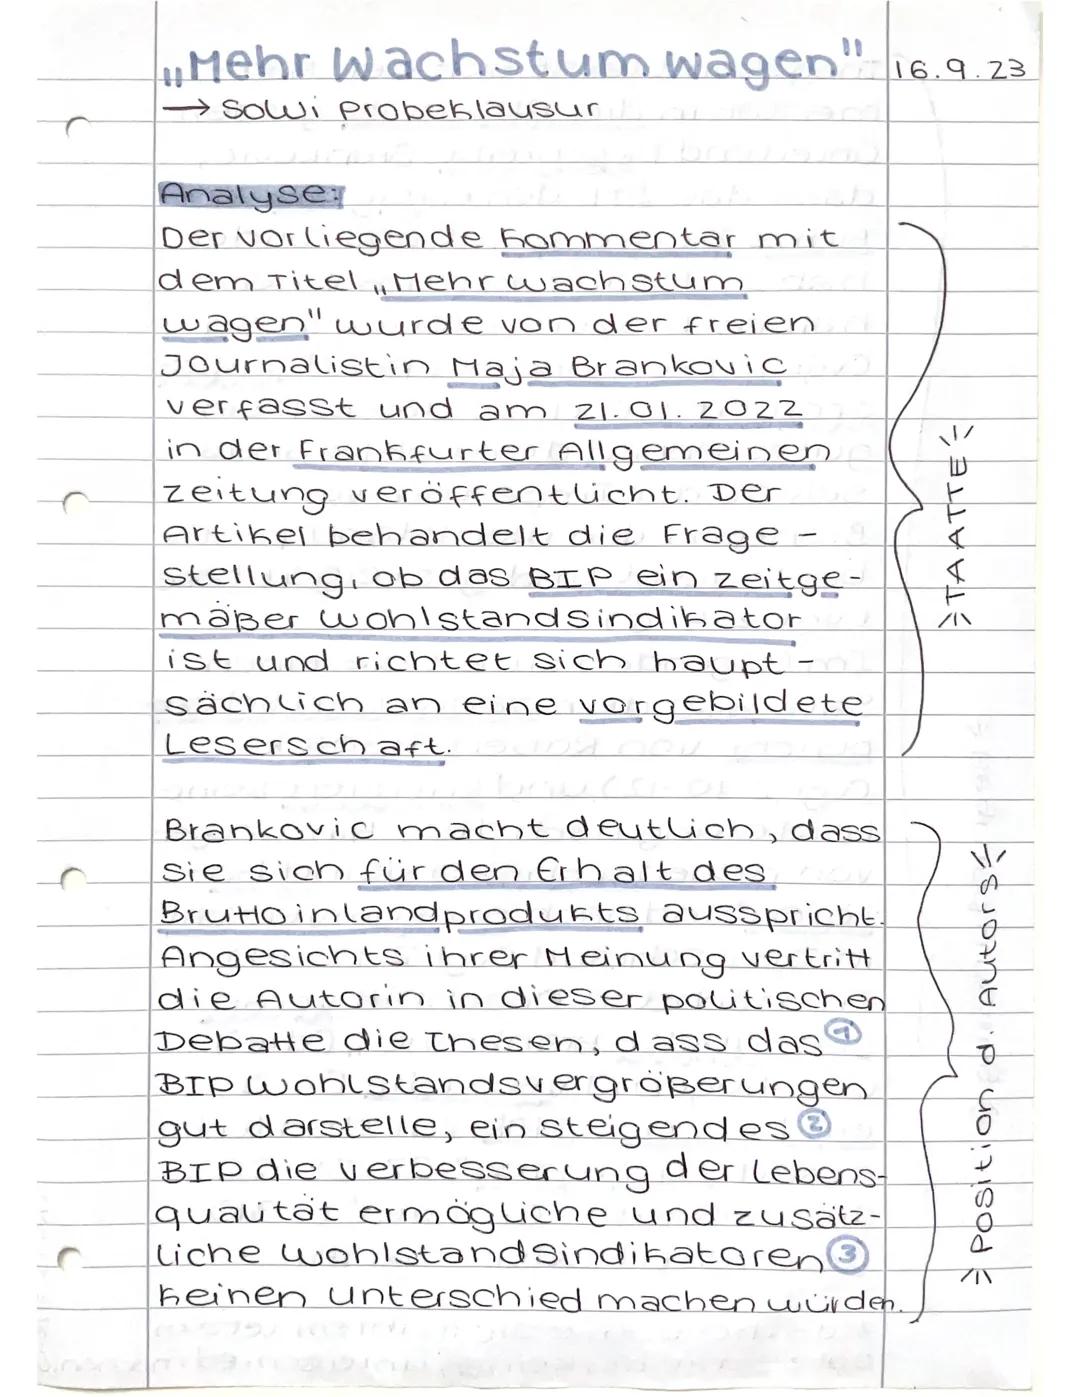 „Mehr Wachstum wagen" 16.9.23
→ Sowi Probeklausur
Analyse:
Der vorliegende Kommentar mit
dem Titel „Mehr Wachstum
wagen" wurde von der freien
Journalistin Maja Brankovic
verfasst und am 21.01.2022
in der Frankfurter Allgemeinen
Zeitung veröffentlicht. Der
Artikel behandelt die Frage-
stellung, ob das BIP ein zeitge-
mäßer Wohlstandsindikator
ist und richtet sich haupt-
sächlich an eine vorgebildete
Leserschaft.
TAATTE
Brankovic macht deutlich, dass
sie sich für den Erhalt des
Bruttoinlandprodukts ausspricht.
Angesichts ihrer Meinung vertritt
die Autorin in dieser politischen
Debatte die Thesen, dass das ①
BIP Wohlstandsvergrößerungen
gut darstelle, ein steigendes ②
BIP die Verbesserung der Lebens-
qualität ermögliche und zusätz-
liche Wohlstandsindikatoren ③
keinen Unterschied machen würden.
Position d. Autors